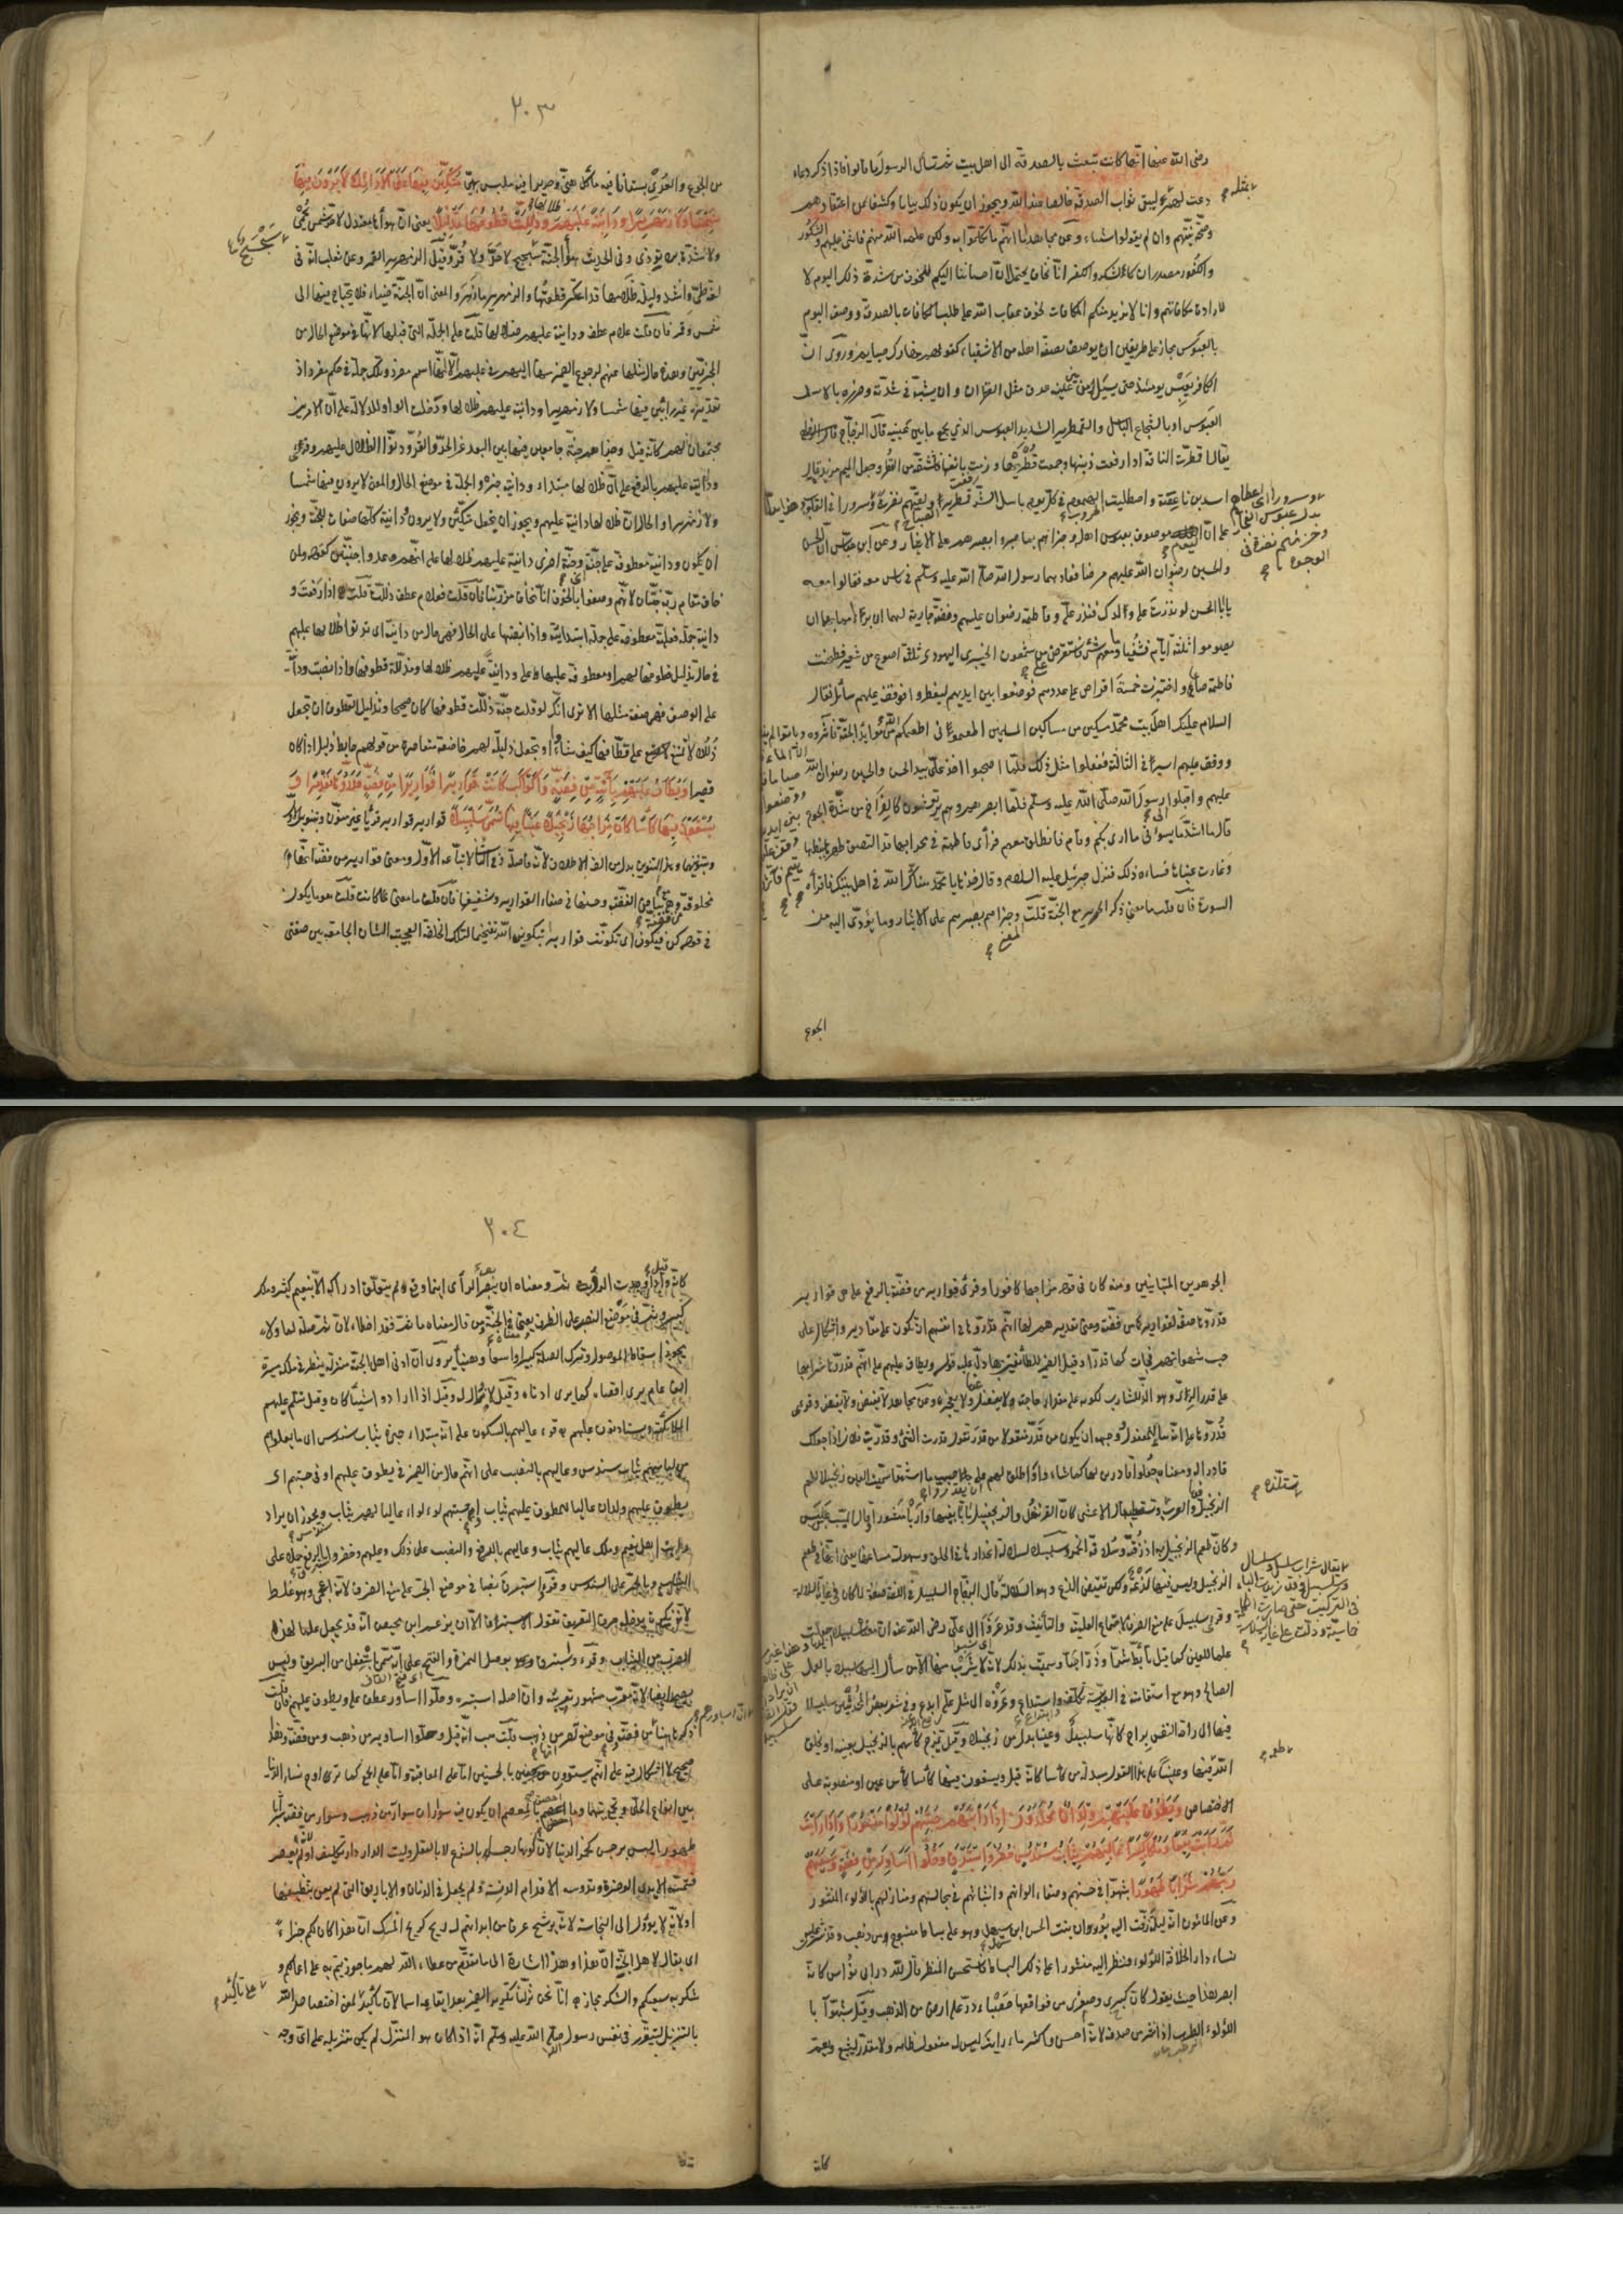 رضى الله عنها انّها كانت تبعث بالصدقة الى اهل بيت ثم تسأل الرسول ما قالوا فاذا ذكر دعاء
دعت لهم بمثله ليبقى ثواب الصدقة خالصا عند الله ويجوز ان يكون ذلك بيانا وكشفا عن اعتقادهم
وصحّة نيّتهم وان لم يقولوا شيئا وعن مجاهد اما انّهم ما تكلّموا به ولكن علمه الله منهم فاثنى عليهم والشكور
والكفور مصدران كالشكر والكفر انّا نخاف يحتمل انّ احساننا اليكم للخوف من شدّة ذلك اليوم لا
لارادة مكافاتكم وانا لا نريد منكم المكافات لخوف عقاب الله على طلب المكافات بالصدقة ووصف اليوم
بالعبوس مجاز على طريقين ان يوصف بصفة اهله من الاشقياء كقولهم نهارك صايم وروى انّ
الكافر يعبس يومئذ حتى يسيل من بين عينيه عرق مثل القطران وان يشبّه في شدّته وضرره بالاسد
العبوس او بالشجاع الباسل والقمطرير الشديد العبوس الذي يجمع ما بين عينيه قال الزجّاج
يقال اقمطرّت الناقة اذا رفعت ذنبها وجمعت قُطْرَيْها وزمّت بانفها فاشتقّه من القُطر وجعل الميم مزيدة قال
اسد بن ناعصة واصطليت الحروب في كلّ يوم باسل الشرّ قمطرير
على انّ اليوم موصوف بعبوس اهله وجزاهم بما صبروا بصبرهم على الايثار وعن ابن عبّاس انّ الحسن
والحسين رضوان الله عليهم مرضا فعادهما رسول الله صلّى الله عليه وسلّم في ناس معه فقالوا
يا ابا الحسن لو نذرت على ولدك فنذر علىّ وفاطمة رضوان عليهم وفضّة جارية لهما ان برءا مما بهما ان
يصوموا ثلثة ايّام فشفيا وما معهم شئ فاستقرض علي من شمعون الخيبرى اليهودى ثلثة اصوع من شعير فطحنت
فاطمة صاعا واختبزت خمسة اقراص على عددهم فوضعوا بين ايديهم ليفطروا فوقف عليهم سائل فقال
السلام عليكم اهل بيت محمّد مسكين من مساكين المسلمين اطعمونى اطعمكم الله من موايد الجنّة فآثروه وباتوا لم يذوقوا
ووقف عليهم اسير في الثالثة ففعلوا مثل ذلك فلمّا اصبحوا اخذ علىّ بيد الحسن والحسين رضوان الله
عليهم واقبلوا الى رسول الله صلّى الله عليه وسلّم فلمّا ابصرهم وهم يرتعشون كالفراخ من شدّة الجوع
قال ما اشدّ ما يسوؤنى ما ارى بكم وقام فانطلق معهم فرأى فاطمة في محرابها قد التصق ظهرها ببطنها
وغارت عيناها فساءه ذلك فنزل جبرئيل عليه السلام وقال خذها يا محمّد هنّأك الله في اهل بيتك فاقرأه
السورة فان قلت ما معنى ذكر الحرير مع الجنّة قلت المعنى وجزاهم بصبرهم على الايثار وما يؤدّى اليه من
الجوع
٢٠٣
من الجوع والعُرى بستانا فيه مأكل هنىّ وحريرا فيه ملبس بهىّ متكئين فيها على الارائك لا يرون فيها
شمسا ولا زمهريرا ودانية عليهم ظلالها وذللت قطوفها تذليلا يعنى انّ هواءها معتدل لا حرّ شمس يُحمى
ولا شدّة برد يؤذى وفى الحديث هواء الجنّة سَجْسَج لا حرّ ولا قرّ وقيل الزمهرير القمر وعن ثعلب انّه في
لغة طىّ وانشد وليلة ظلامها قد اعتكر قطعتها والزمهرير ما زهر والمعنى انّ الجنّة ضياء فلا يحتاج فيها الى
شمس وقمر فان قلت علام عطف ودانية عليهم ظلالها قلت على الجملة التى قبلها لانّها في موضع الحال من
المجزيّين وهذه حال مثلها عنهم لرجوع الضمير منها اليهم في عليهم الّا انّها اسم مفرد وتلك جملة في حكم مفرد
تقديره غير رائين فيها شمسا ولا زمهريرا ودانية عليهم ظلالها ودخلت الواو للدلالة على انّ الامرين
مجتمعان لهم كانّه قيل وجزاهم جنّة جامعين فيها بين البعد عن الحرّ والقرّ ودنوّ الظلال عليهم وقرئ
ودانيةٌ عليهم بالرفع على انّ ظلالها مبتداء ودانية خبره والجملة في موضع الحال والمعنى لا يرون فيها شمسا
ولا زمهريرا والحال انّ ظلالها دانية عليهم ويجوز ان يجعل متكئين ولا يرون ودانية كلّها صفات لجنّة ويجوز
ان يكون ودانية معطوفة على جنّة اى وجنّة اخرى دانية عليهم ظلالها على انّهم وعدوا جنّتين كقوله ولمن
خاف مقام ربّه جنّتان لانّهم وصفوا بالخوف انّا نخاف من ربّنا فان قلت فعلام عطف وذللت قلت اذا رفعت و
دانية جملة فعليّة معطوفة على جملة ابتدائيّة واذا نصبتها على الحال فهى حال من دانية اى تدنو ظلالها عليهم
في حال تذليل قطوفها لهم او معطوفة عليها على ودانية عليهم ظلالها ومذلّلة قطوفها واذا نصبت ودانية
على الوصف فهى صفة مثلها الا ترى انّك لو قلت جنّة ذلّلت قطوفها كان صحيحا وتذليل القطوف ان تجعل
ذُللا لا تمتنع على قطّافها كيف شاءوا او تجعل ذليلة لهم خاضعة متقاصرة من قولهم حايط ذليل اذا كان
قصيرا ويطاف عليهم بآنية من فضة واكواب كانت قواريرا قواريرا من فضة قدروها تقديرا و
يسقون فيها كأسا كان مزاجها زنجبيلا عينا فيها تسمى سلسبيلا قوارير قوارير قرئا غير منوّنين وبتنوين الاوّل
وبتنوينهما وهذا التنوين بدل من الف الاطلاق لانّه فاصلة وفى الثانى لاتباعه الاوّل ومعنى قوارير من فضّة انّها
مخلوقة من فضّة وهى جامعة بياض الفضّة وحسنها في صفاء القوارير وشفيفها فان قلت ما معنى كانت قلت هو من يكون
في قوله كن فيكون اى تكوّنت قوارير بتكوين الله تفخيما لتلك الخلقة العجيبة الشان الجامعة بين صفتى
الجوهرين المتباينين ومنه كان في قوله مزاجها كافورا وقرئ قوارير من فضّة بالرفع على هى قوارير
قدّروها صفة لقوارير من فضّة ومعنى تقديرهم لها انّهم قدّروها في انفسهم ان تكون على مقادير واشكال على
حسب شهواتهم فجاءت كما قدّروا وقيل الضمير للطائفين بها دلّ عليه قوله ويطاف عليهم على انّهم قدّروا شرابها
على قدر الرىّ وهو الذّ للشارب لكونه على مقدار حاجته لا يفضل عنها ولا يعجز وعن مجاهد لا تفيض ولا تغيض وقرئ
قُدّروها على البناء للمفعول ووجهه ان يكون من قدّر منقولا من قدر تقول قدرت الشئ وقدّرنيه فلان اذا جعلك
قادرا له ومعناه جعلوا قادرين لها كما شاءوا واطلق لهم ان يقدروا على حسب ما اشتهوا سمّيت العين زنجبيلا لطعم
الزنجبيل فيها والعرب تستلذّه وتستطيبه قال الاعشى كانّ القرنفل والزنجبيل باتا بفيها وأريا مشورا وقال المسيّب بن عَلَس
وكانّ طعم الزنجبيل به اذ ذُقته وسُلافة الخمر وسلسبيلا لسلاسة انحدارها في الحلق وسهولة مساغها يعنى انّها في طعم
الزنجبيل وليس فيها لذعه ولكن نقيض اللذع وهو السلاسة قال الزجّاج السلسبيل في اللغة صفة لما كان في غاية السلاسة
وقرئ سلسبيل على منع الصرف لاجتماع العلميّة والتأنيث وقد عزوا الى علىّ رضى الله عنه انّ معناه سل سبيلا
علما للعين كما قيل تأبّط شرّا وذرّى حبّا وسمّيت بذلك لانّه لا يشرب منها الّا من سأل اليها سبيلا بالعمل
الصالح وهو مع استقامته في العربيّة تكلّف وابتداع وعزوه الى مثل علىّ ابدع وفى شعر بعض المحدثين سل سبيلا
فيها الى راحة النفس براح كانّها سلسبيل وعينا بدل من زنجبيلا وقيل تمزج كأسهم بالزنجبيل بعينه او يخلق
الله طعمه فيها وعينا على هذا القول مبدلة من كأسا كانّه قيل ويسقون فيها كأسا كأس عين او منصوبة على
الاختصاص ويطوف عليهم ولدان مخلدون اذا رأيتهم حسبتهم لؤلؤا منثورا واذا رأيت
ثم رأيت نعيما وملكا كبيرا عاليهم ثياب سندس خضر واستبرق وحلوا اساور من فضة وسقيهم
ربهم شرابا طهورا شبّهوا في حسنهم وصفاء الوانهم وانبثاثهم في مجالسهم ومنازلهم باللؤلؤ المنثور
وعن المأمون انّه ليلة زفّت اليه بوران بنت الحسن ابن سهل وهو على بساط منسوج من ذهب وقد نثرت عليه
نساء دار الخلافة اللؤلؤ فنظر اليه منثورا على ذلك البساط فاستحسن المنظر قال لله درّ ابى نواس كانّه
ابصر هذا حيث يقول كانّ كبرى وصغرى من فواقعها حصباء درّ على ارض من الذهب وقيل شبّهوا با
اللؤلؤ الرطب اذا نثر من صدفه لانّه احسن واكثر ماء رأيت ليس له مفعول ظاهر ولا مقدّر ليشيع ويعمّ
كانّه
٢٠٤
كانّه قيل واذا وجدت الرؤية ثمّ ومعناه ان بصر الرأى اينما وقع لم يتعلّق ادراكه الّا بنعيم كثير وملك
كبير وثمّ في موضع النصب على الظرف يعنى في الجنّة ومن قال معناه ما ثمّ فقد اخطاء لانّ ثمّ صلة لما ولا
يجوز اسقاط الموصول وترك الصلة كبيرا واسعا وهنيئا يروى انّ ادنى اهل الجنّة منزلة ينظر في ملكه مسيرة
الف عام يرى اقصاه كما يرى ادناه وقيل لا زوال له وقيل اذا ارادوا شيئا كان وقيل تسلّم عليهم
الملائكة ويستأذنون عليهم قرئ عاليهم بالسكون على انّه مبتداء خبره ثياب سندس اى ما يعلوهم
من لباسهم ثياب سندس وعاليهم بالنصب على انّه حال من الضمير في يطوف عليهم او في حسبتهم اى
يطوف عليهم ولدان عاليا للمطوف عليهم ثياب او حسبتهم لؤلؤا عاليا لهم ثياب ويجوز ان يراد
رأيت اهل نعيم وملك عاليهم ثياب وعاليتهم بالرفع والنصب على ذلك وعليهم وخضر واستبرق بالرفع حملا على
الثياب وبالجرّ على السندس وقرئ واستبرق نصبا في موضع الجرّ على منع الصرف لانّه اعجمى وهو غلط
لانّه نكرة يدخله حرف التعريف تقول الاستبرق الّا ان يزعم ابن محيصن انّه قد يجعل علما لهذا
الضرب من الثياب وقرئ واستبرق بوصل الهمزة والفتح على انّه مسمّى باستفعل من البريق وليس
بصحيح ايضا لانّه معرّب مشهور تعريبه وانّ اصله استبره وحلّوا اساور عطف على ويطوف عليهم فان قلت
ذكر هاهنا انّ اساورهم من فضّة وفى موضع آخر من ذهب قلت هب انّه قيل وحلّوا اساور من ذهب ومن فضّة وهذا
صحيح لا اشكال فيه على انّهم يسوّرون بالجنسين امّا على المعاقبة وامّا على الجمع كما تزاوج نساء الدنيا
بين انواع الحلىّ وتجمع بينها وما احسن بالمعصم ان يكون فيه سواران سوار من ذهب وسوار من فضّة شرابا
طهورا ليس برجس كخمر الدنيا لانّ كونها رجسا بالشرع لا بالعقل وليست الدار دار تكليف او لانّه لم يعصر
فتمسّه الايدى الوضرة وتدوسه الاقدام الدنسة ولم يجعل في الدنان والاباريق التى لم يعن بتنظيفها
او لانّه لا يؤول الى النجاسة لانّه يرشح عرقا من ابدانهم له ريح كريح المسك انّ هذا كان لكم جزاء
اى يقال لاهل الجنّة انّ هذا وهذا اشارة الى ما تقدّم من عطاء الله لهم ما جوزيتم به على اعمالكم و
شكر به سعيكم والشكر مجاز انّا نحن نزّلنا تكرير الضمير بعد ايقاعه اسما لانّ تأكيد على تأكيد لمعنى اختصاص الله
بالتنزيل ليتقرّر في نفس رسول الله صلّى الله عليه وسلّم انّه اذا كان هو المنزّل لم يكن تنزيله على اىّ وجه